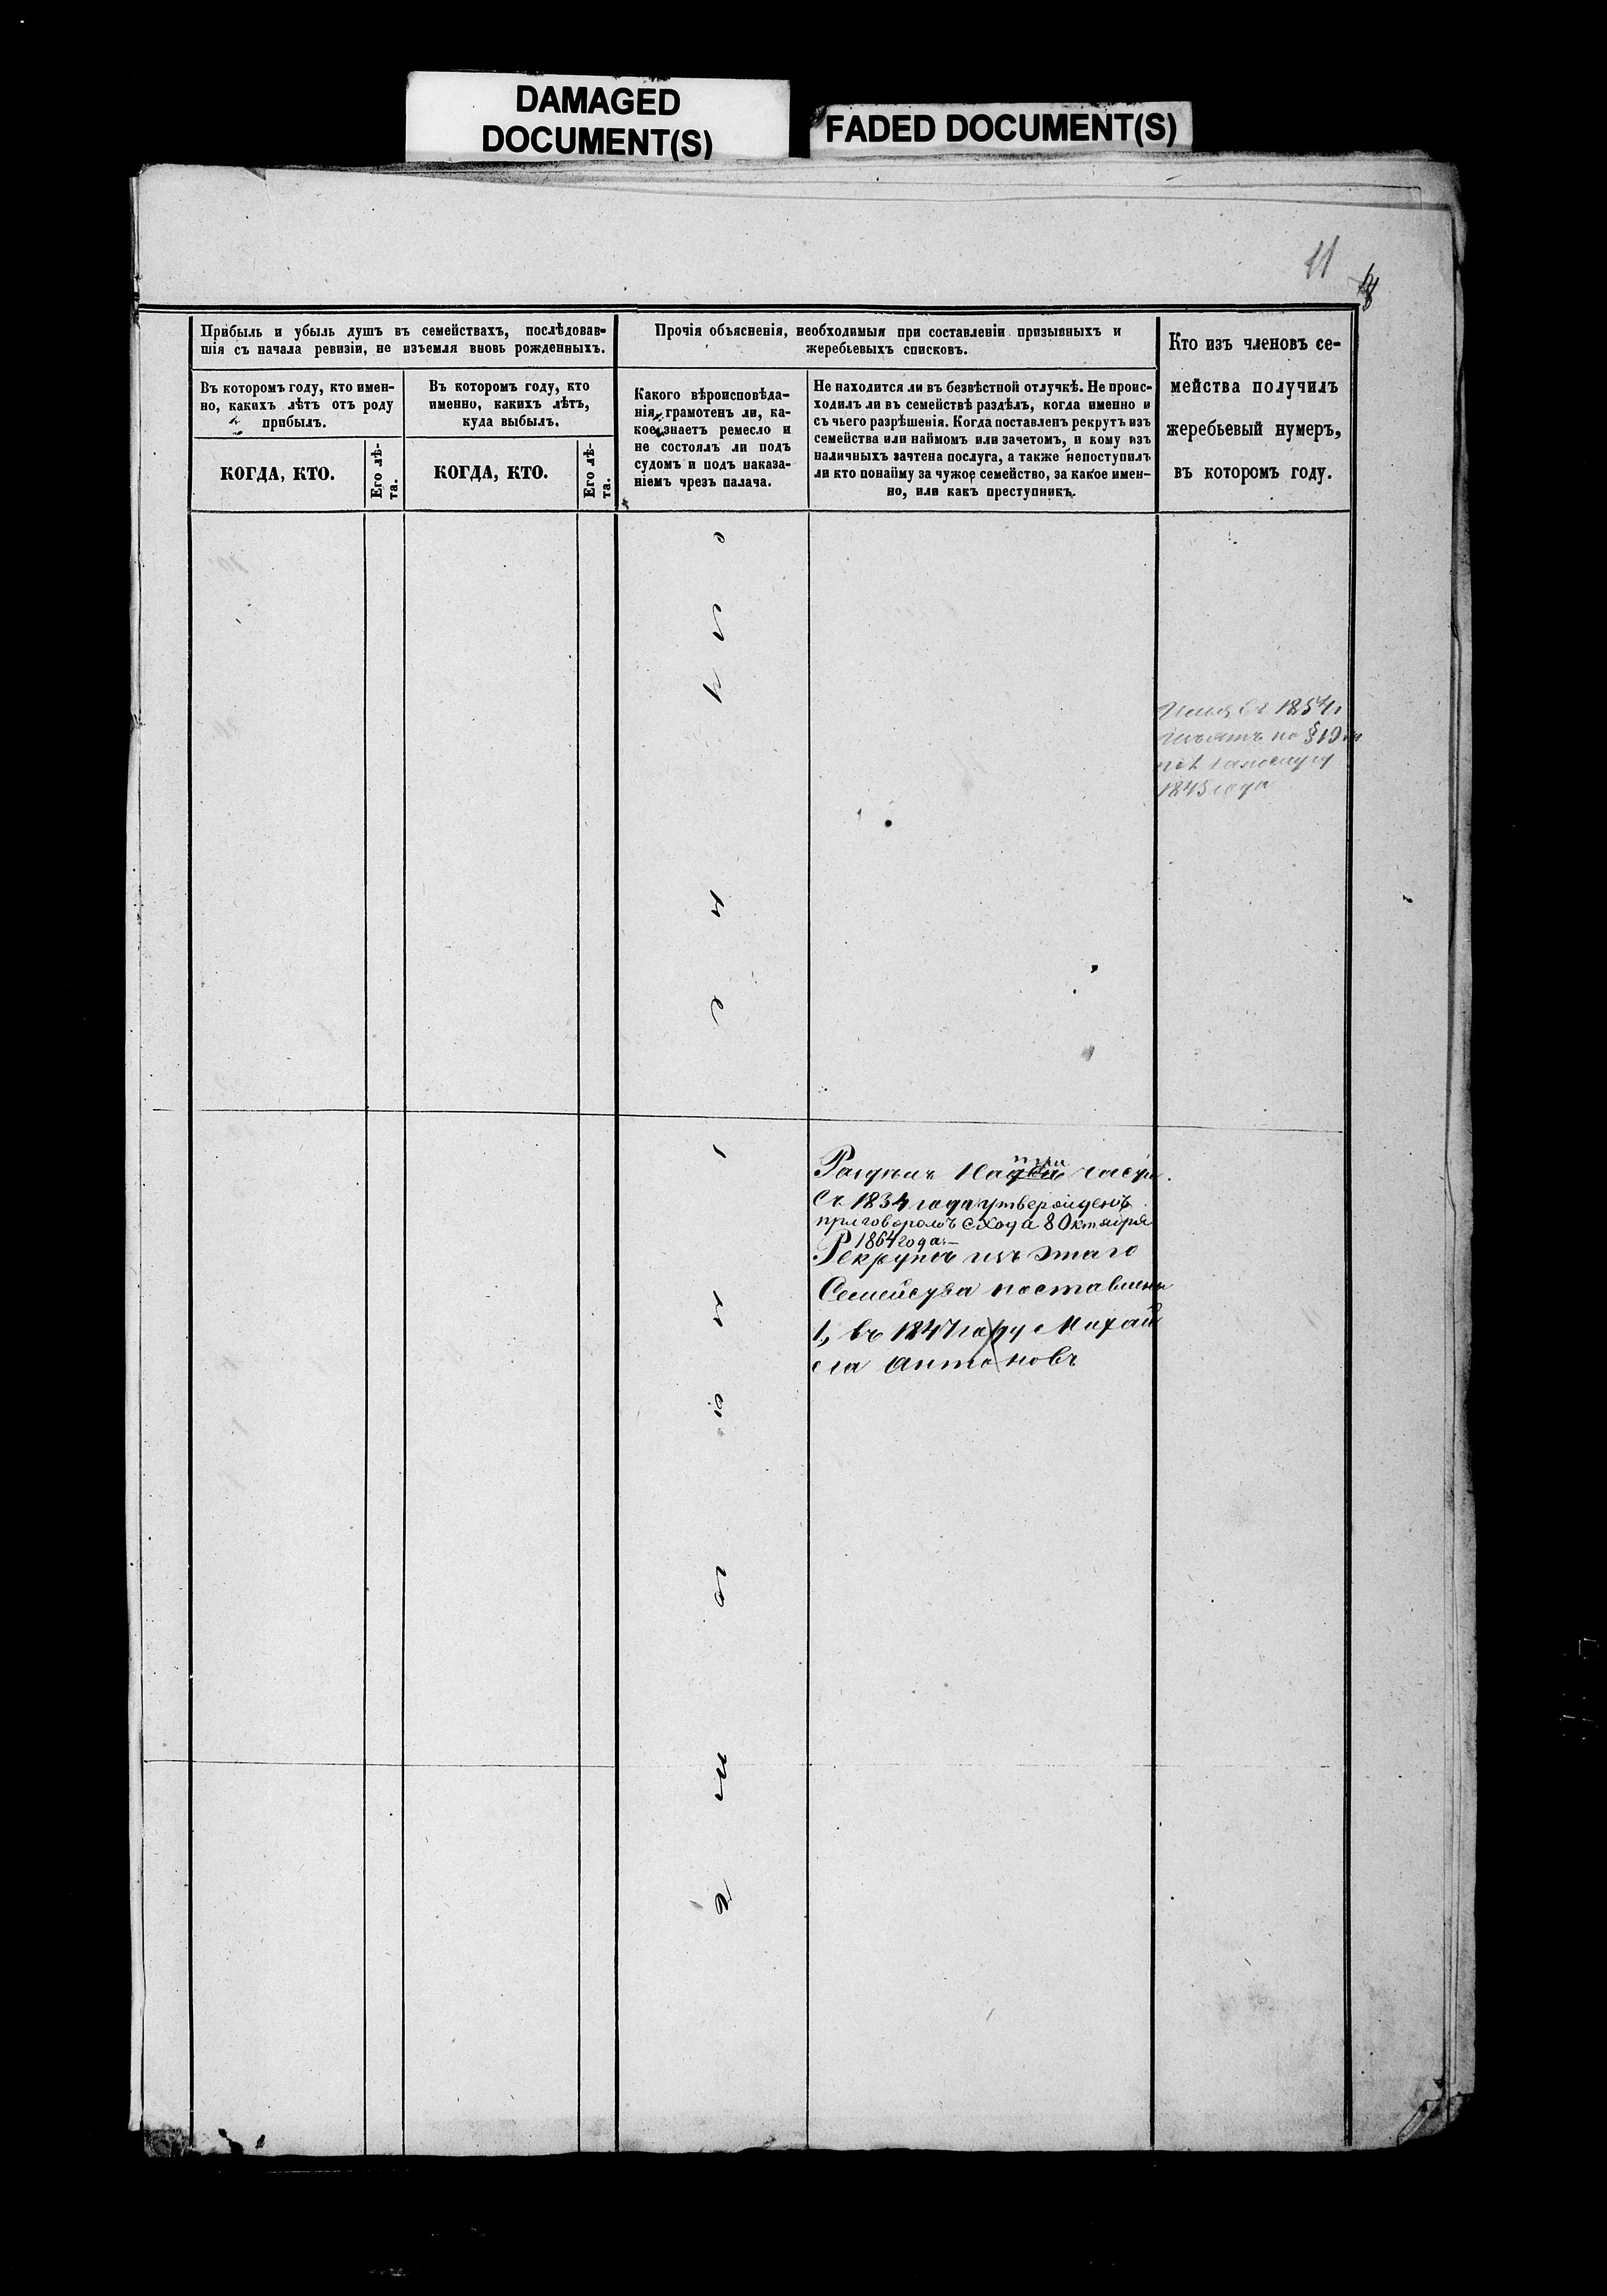 DAMAGED
DOCUMENT(S)
FADED DOCUMENT(S)
11
Прибыль и убыль душъ въ семействахъ, послѣдовав-
шія съ начала ревизіи, не изъемля вновь рожденныхъ.
Прочія объясненія, необходимыя при составленіи призывныхъ и
жеребьевыхъ списковъ.
Кто изъ членовъ се-
мейства получилъ
жеребьевый нумеръ,
въ которомъ году.
Въ которомъ году, кто имен-
но, какихъ лѣтъ отъ роду
прибылъ.
Въ которомъ году, кто
именно, какихъ лѣтъ,
куда выбылъ.
Какого вѣроисповѣда-
нія, грамотенъ ли, ка-
кое знаетъ ремесло и
не состоялъ ли подъ
судомъ и подъ наказа-
ніемъ чрезъ палача.
Не находится ли въ безвѣстной отлучкѣ. Не проис-
ходилъ ли въ семействѣ раздѣлъ, когда именно и
съ чьего разрѣшенія. Когда поставленъ рекрутъ изъ
семейства или наймомъ или зачетомъ, и кому изъ
наличныхъ зачтена послуга, а также непоступилъ
ли кто понайму за чужое семейство, за какое имен-
но, или какъ преступникъ.
КОГДА, КТО.
Его лѣ-
та.
КОГДА, КТО.
Его лѣ-
та.
1854
по § 19
1845 года
Съ 1834 года утвержденъ
приговоромъ схода 8 Октября
1864 года.—
Рекрутъ изъ этаго
Семейства поставленъ
1, въ 1847 году Михай
ла Антоновъ